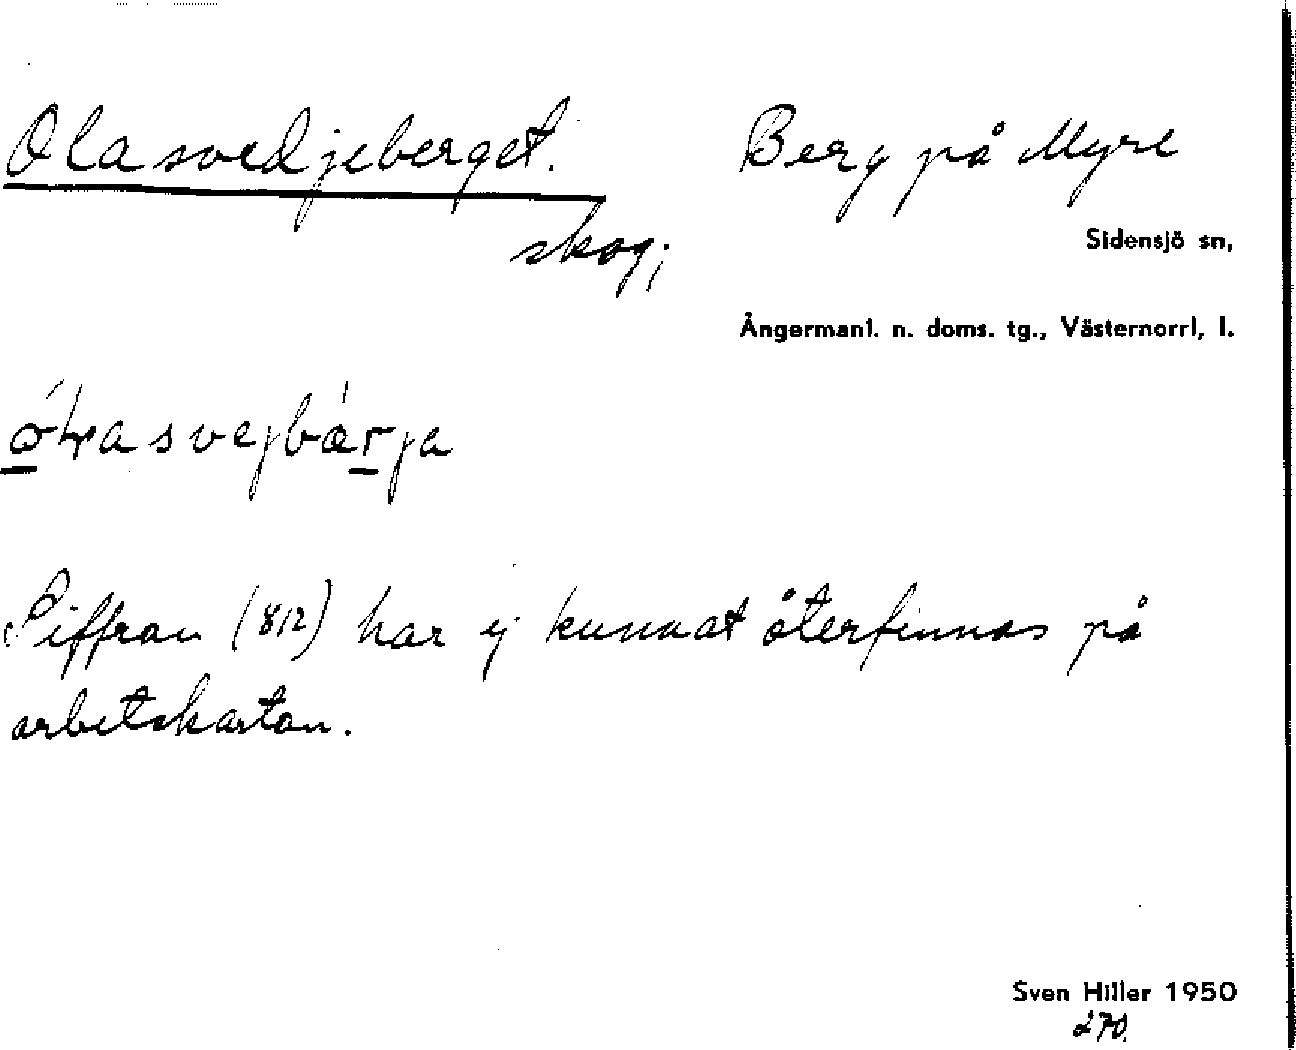 Olasvedjeberget. Berg på Myre
skog;
Sidensjö sn,
Ångermanl. n. doms. tg., Västernorrl, l.
Siffran (812) har ej kunnat återfinnas på
arbetskartan.
Sven Hiller 1950
270.